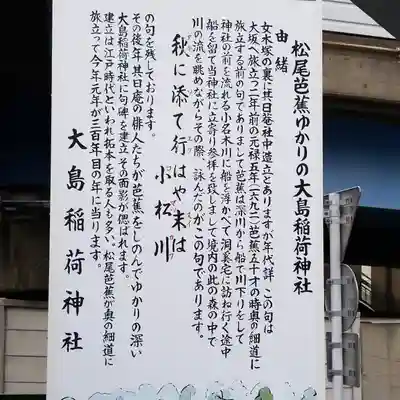 松尾芭蕉ゆかりの大島稲荷神社
由緒
女木塚の裏に其日菴社中造立とありますが年代詳この句は
大坂へ旅立つ二年前の元禄五年(一六九二)芭蕉五十才の時奥の細道に
旅立する前の句でありまして芭蕉は深川から船で川下りをして
神社の前を流れる小名木川に船を浮かべて洞奚宅に訪ね行く途中
船を留て当神社に立寄り参拝を致しまして境内の此の森の中で
川の流を眺めながらその際、詠んだのがこの句であります。
秋に添て行はや末は
小松川
の句を残しております。
その後年其日庵の俳人たちが芭蕉をしのんでゆかりの深い
大島稲荷神社に句碑を建立その面影が偲ばれます。
建立は江戸時代といわれ拓本を取る人も多い。松尾芭蕉が奥の細道に
旅立って今年元年が三百年目の年に当ります。
大島稲荷神社